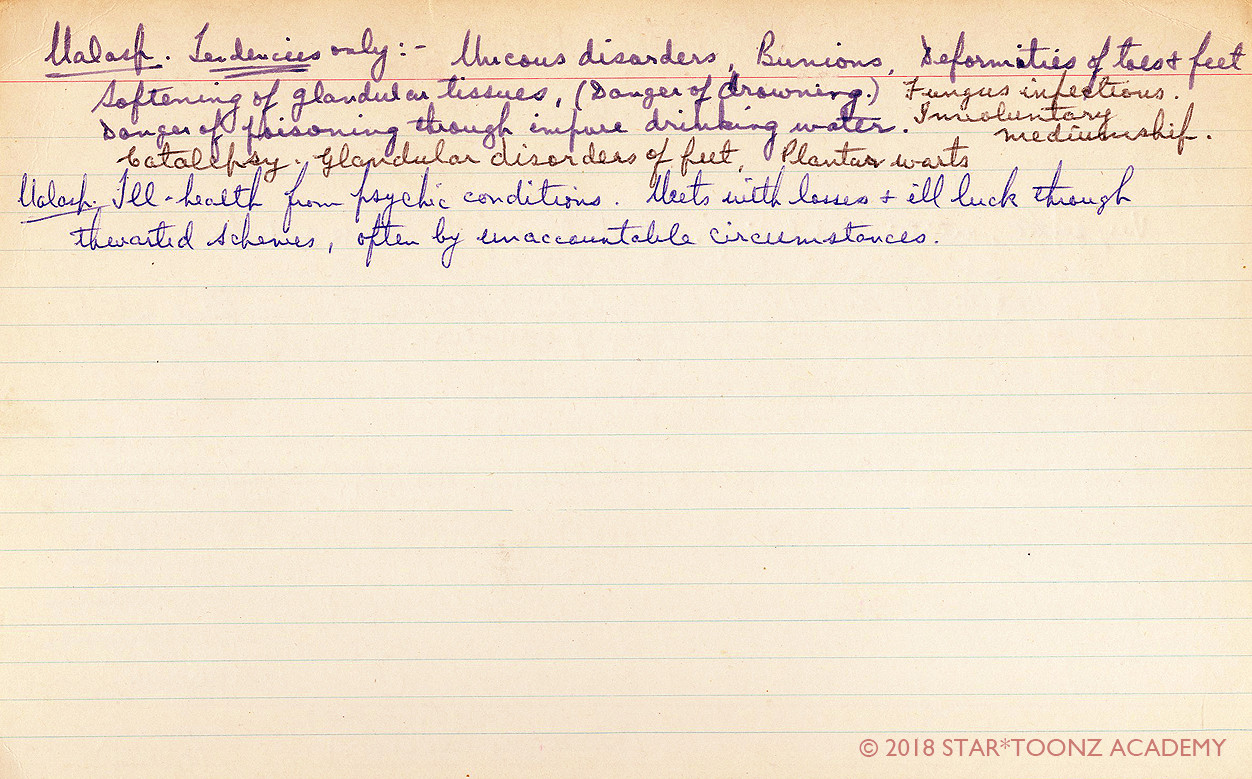 Malasp. Tendencies only:- Mucous disorders, Bunions, Deformities of toes & feet
Softening of glandular tissues, (Danger of drowning.) Fungus infections.
Danger of poisoning through impure drinking water. Involuntary
mediumship.
Catalepsy. Glandular disorders of feet, Plantar warts
Malasp. Ill-health from psychic conditions. Meets with losses & ill luck through
thwarted schemes, often by unaccountable circumstances.
© 2018 STAR*TOONZ ACADEMY